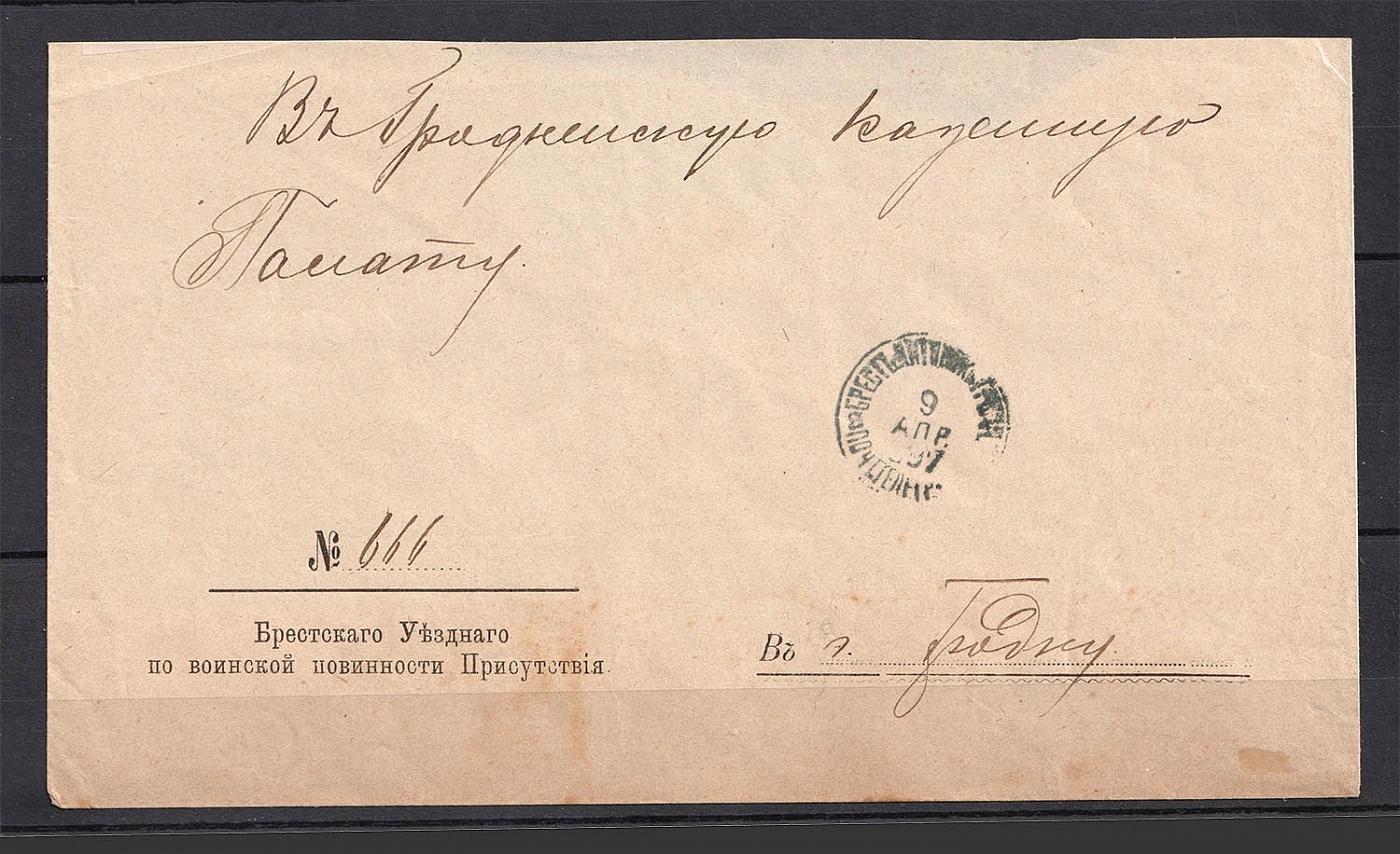 Въ Гродненскую казенную
Палату.
БРЕСТЪ-ЛИТОВСК.
9
АПР.
№ 666
Брестскаго Уѣзднаго
по воинской повинности Присутствія.
Въ г. Гродну.